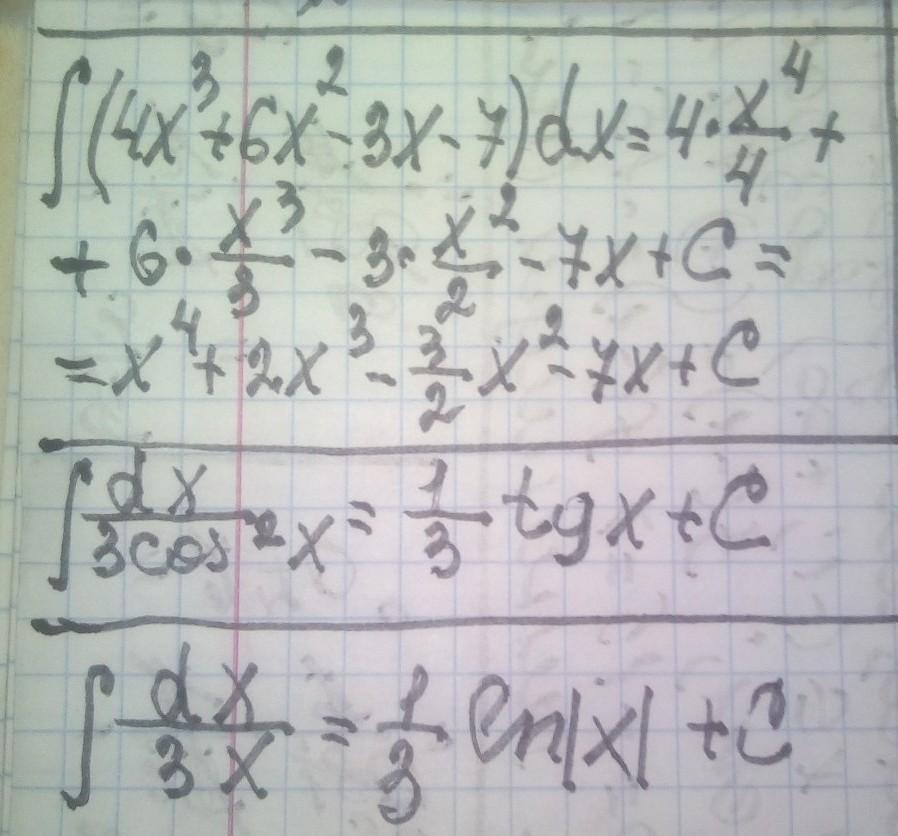 ∫(4x³+6x²-3x-7)dx=4·x⁴/4+
+6·x³/3-3·x²/2-7x+C=
=x⁴+2x³-3/2x²-7x+C
∫dx/3cos²x=1/3 tgx+C
∫dx/3x=1/3 ln|x|+C